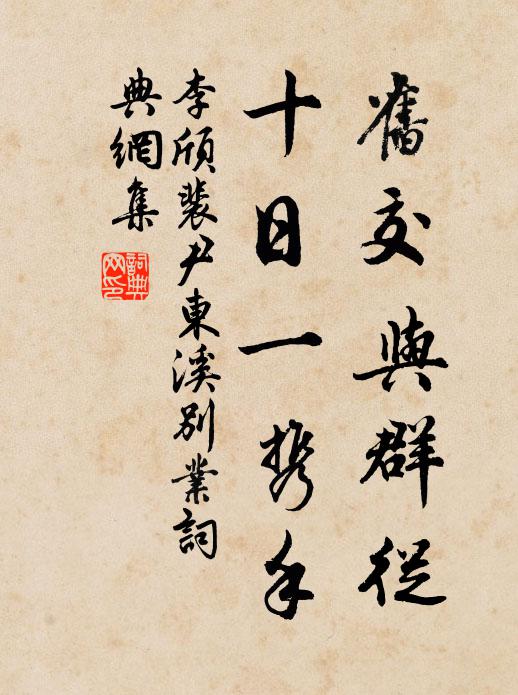 舊交與群從
十日一携手
李頎裴尹東溪別業詞
典網集
詞典網印